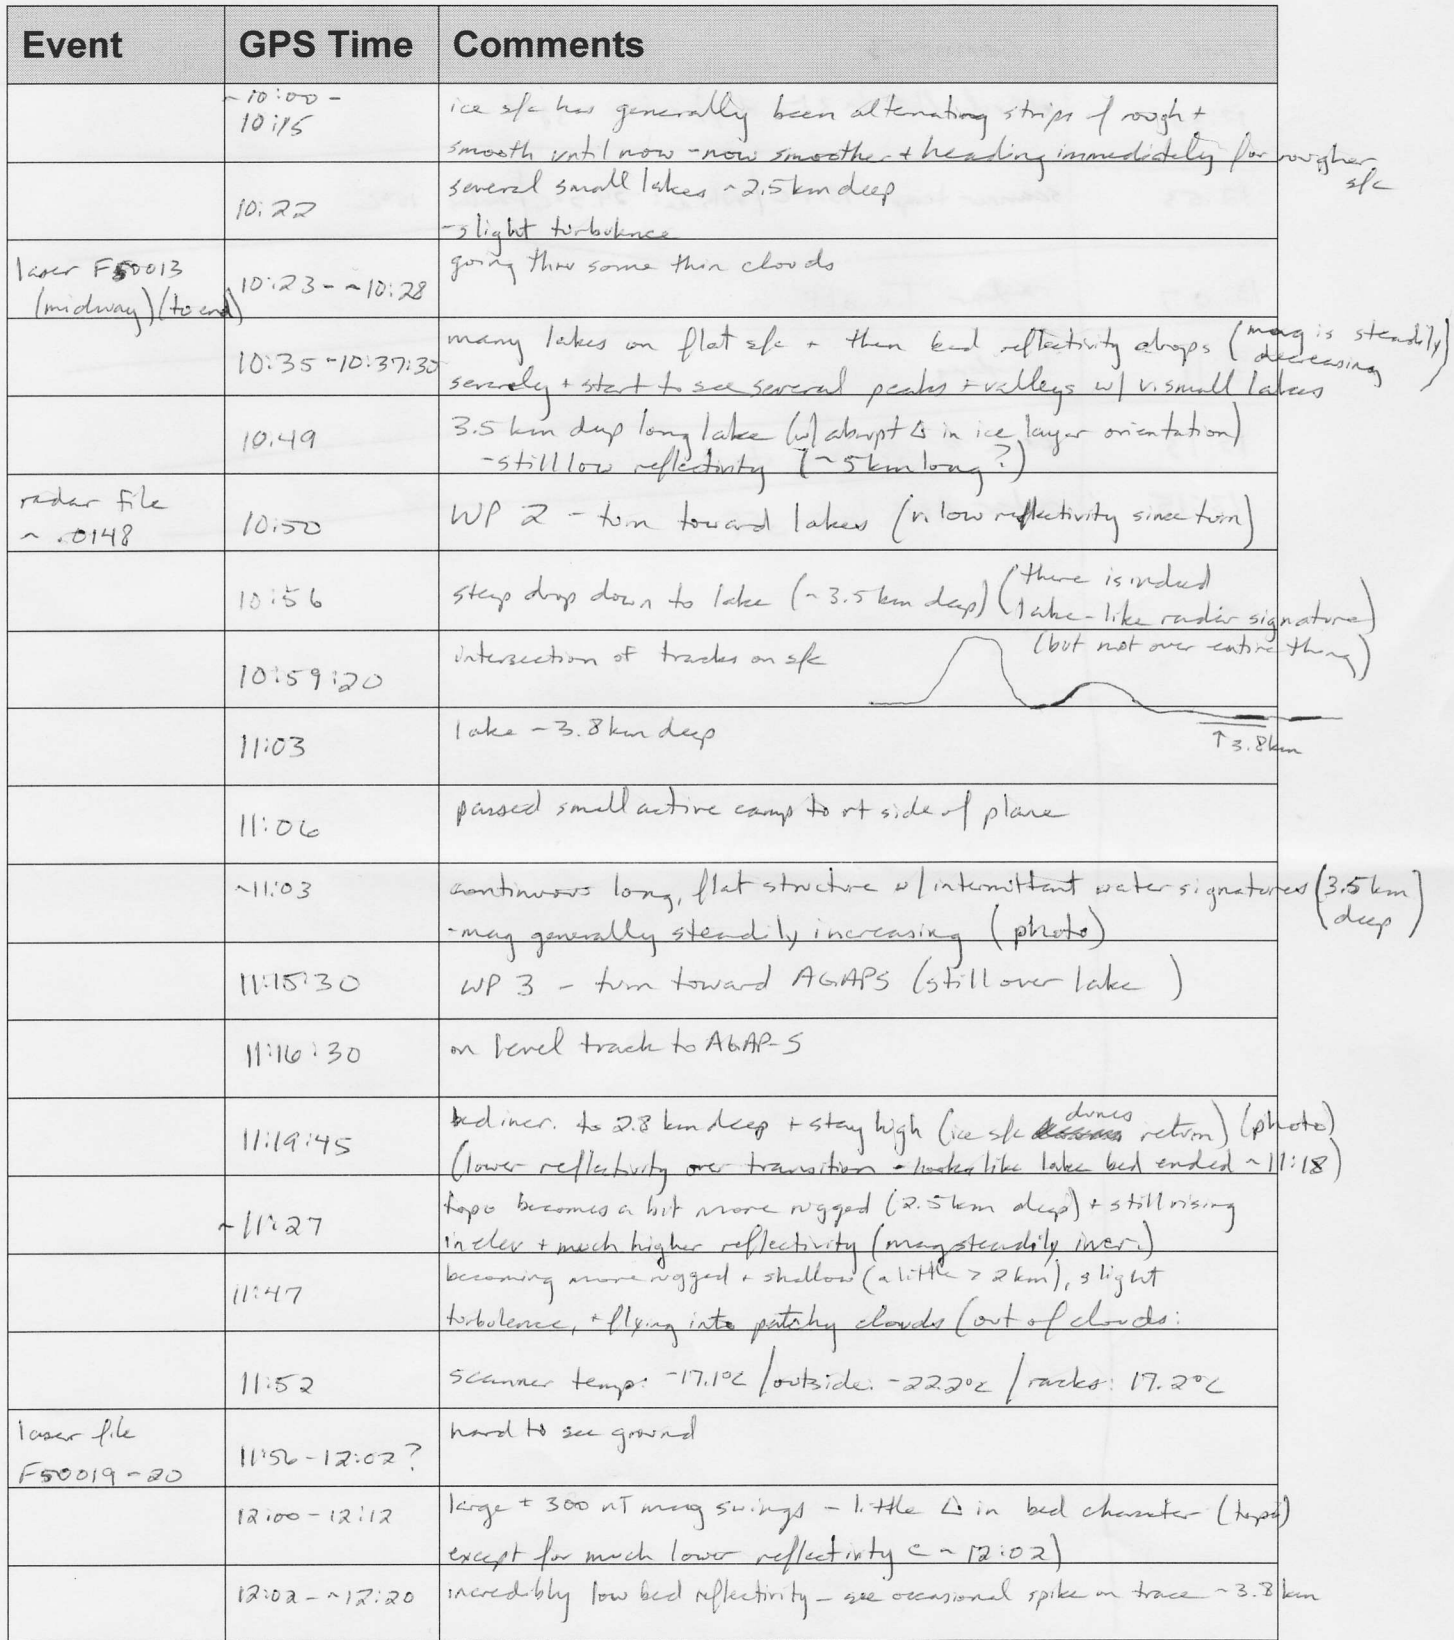 Event GPS Time Comments
~10:00 -
10:15
ice sfc has generally been alternating strips of rough +
smooth until now - now smoother + heading immediately for rougher
sfc
10:22
several small lakes ~2.5 km deep
- slight turbulence
laser F50013
(midway) (to end)
10:23 - ~10:28
going thru some thin clouds
10:35 - 10:37:30
many lakes on flat sfc + then bed reflectivity drops (mag is steadily
decreasing)
severely + start to see several peaks + valleys w/ v. small lakes
10:49
3.5 km deep long lake (w/ abrupt Δ in ice layer orientation)
- still low reflectivity (~5 km long?)
radar file
~ .0148
10:50
WP 2 - turn toward lakes (v. low reflectivity since turn)
10:56
steep drop down to lake (~3.5 km deep) (there is indeed
lake-like radar signature)
(but not over entire thing)
10:59:20
intersection of tracks on sfc
↑3.8km
11:03
lake ~3.8 km deep
11:06
passed small active camp to rt side of plane
~11:03
continuous long, flat structure w/ intermittant water signatures (3.5 km
deep)
- mag generally steadily increasing (photo)
11:15:30
WP 3 - turn toward AGAPS (still over lake )
11:16:30
on level track to AGAP-S
11:19:45
bed incr. to 2.8 km deep + stay high (ice sfc dunes return) (photo)
(lower reflectivity over transition - looks like lake bed ended ~11:18)
~11:27
topo becomes a bit more rugged (2.5 km deep) + still rising
in elev + much higher reflectivity (mag steadily incr.)
11:47
becoming more rugged + shallow (a little > 2 km), slight
turbulence, + flying into patchy clouds (out of clouds:
11:52
scanner temp: -17.1°C / outside: -22.2°C / racks: 17.2°C
laser file
F50019-20
11:56 - 12:02?
hard to see ground
12:00 - 12:12
large ± 300 nT mag swings - little Δ in bed character (topo)
except for much lower reflectivity @ ~ 12:02)
12:02 - ~12:20
incredibly low bed reflectivity - see occasional spike on trace ~3.8 km